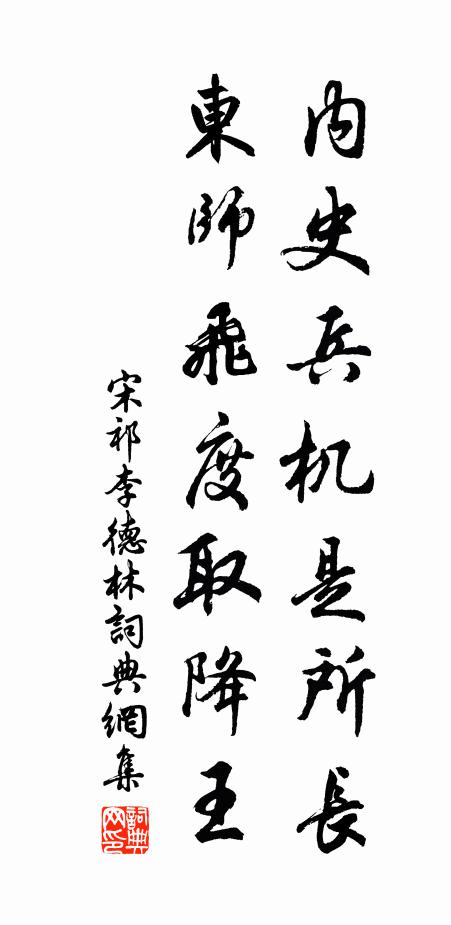 内史兵机是所長
東師飛度取降王
宋祁李德林詞典網集
詞典網印